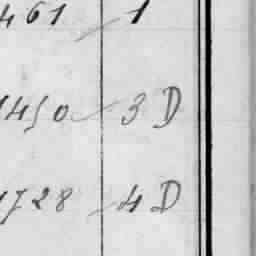 461 1
1450 3 D
1728 4 D